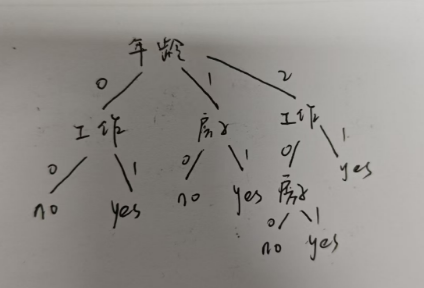 年龄
0 1 2
工作 房子 工作
0 1 0 1 0 1
no yes no yes 房子 yes
0 1
no yes